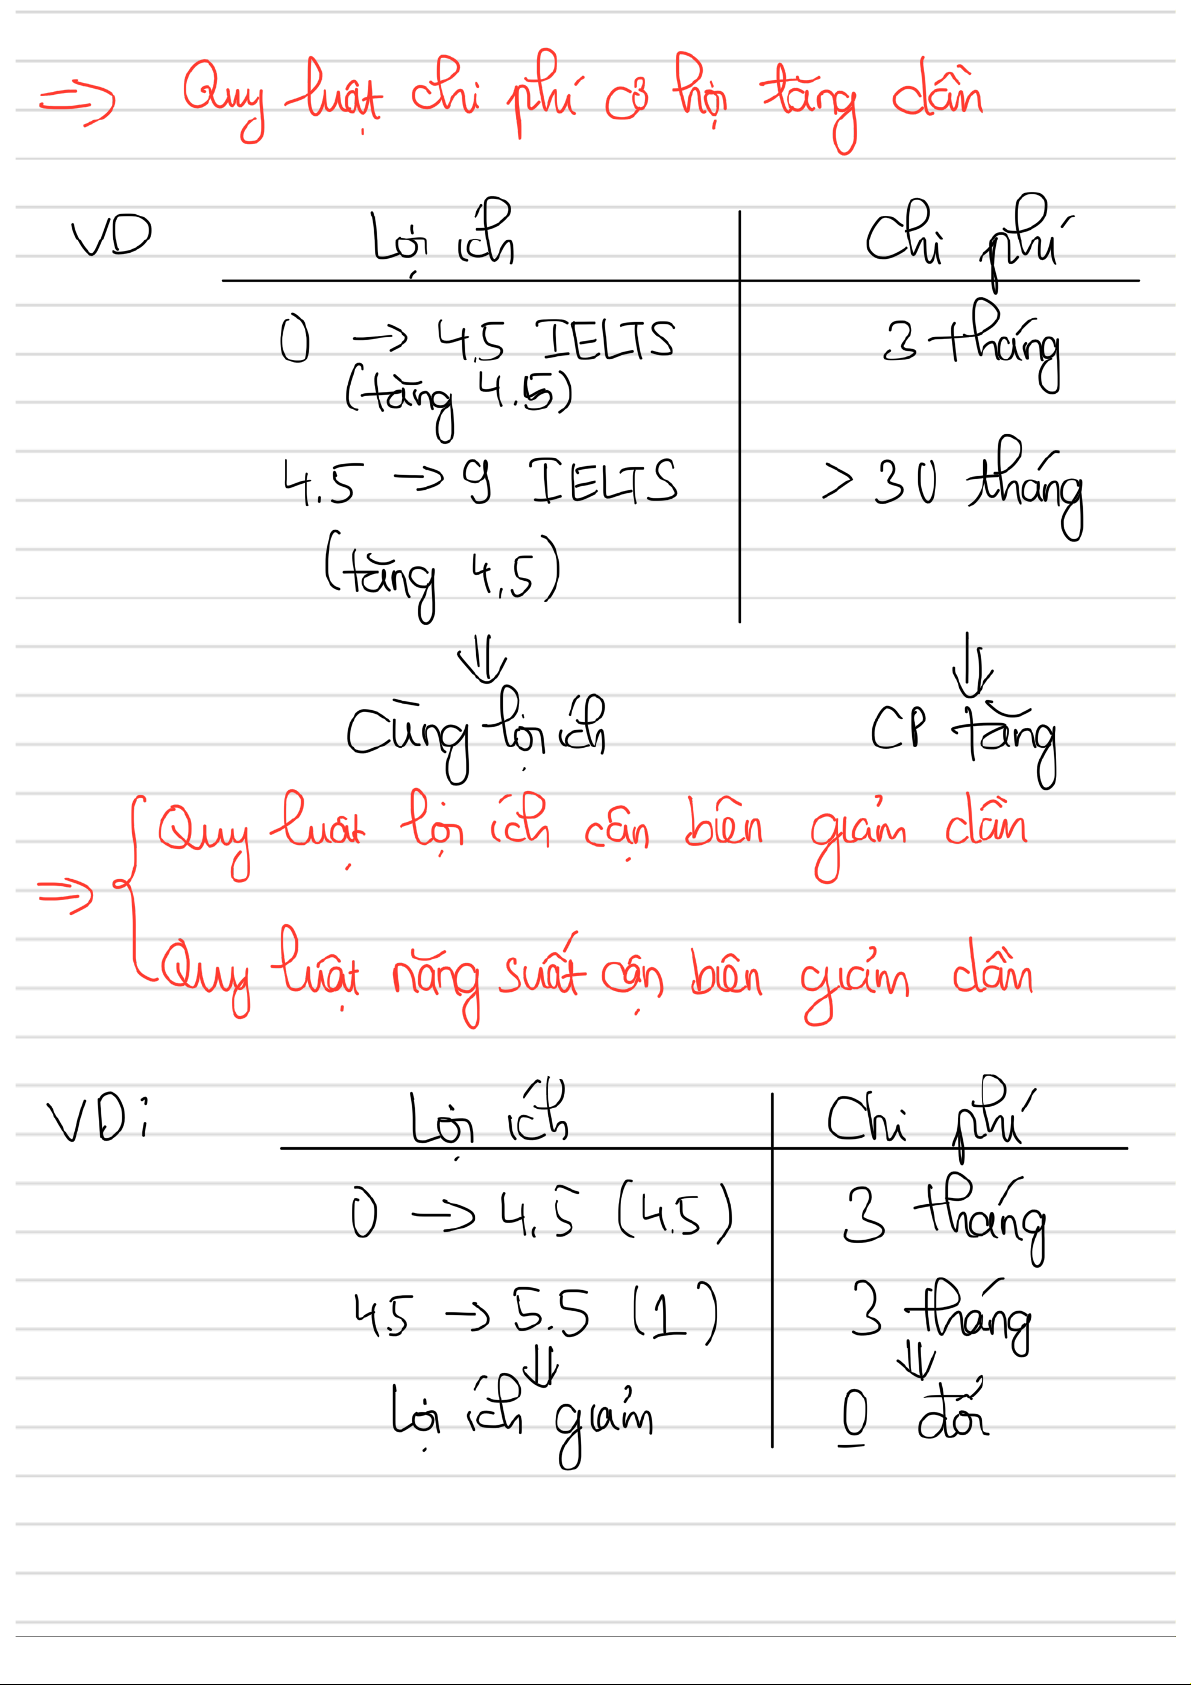 => Quy luật chi phí cơ hội tăng dần
VD Lợi ích Chi phí
0 → 4.5 IELTS 3 tháng
(tăng 4.5)
4.5 → 9 IELTS > 30 tháng
(tăng 4.5)
⇓ ⇓
Cùng lợi ích CP tăng
Quy luật lợi ích cận biên giảm dần
=> {
Quy luật năng suất cận biên giảm dần
VD: Lợi ích Chi phí
0 → 4.5 (4.5) 3 tháng
4.5 → 5.5 (1) 3 tháng
⇓ ⇓
Lợi ích giảm 0 đổi